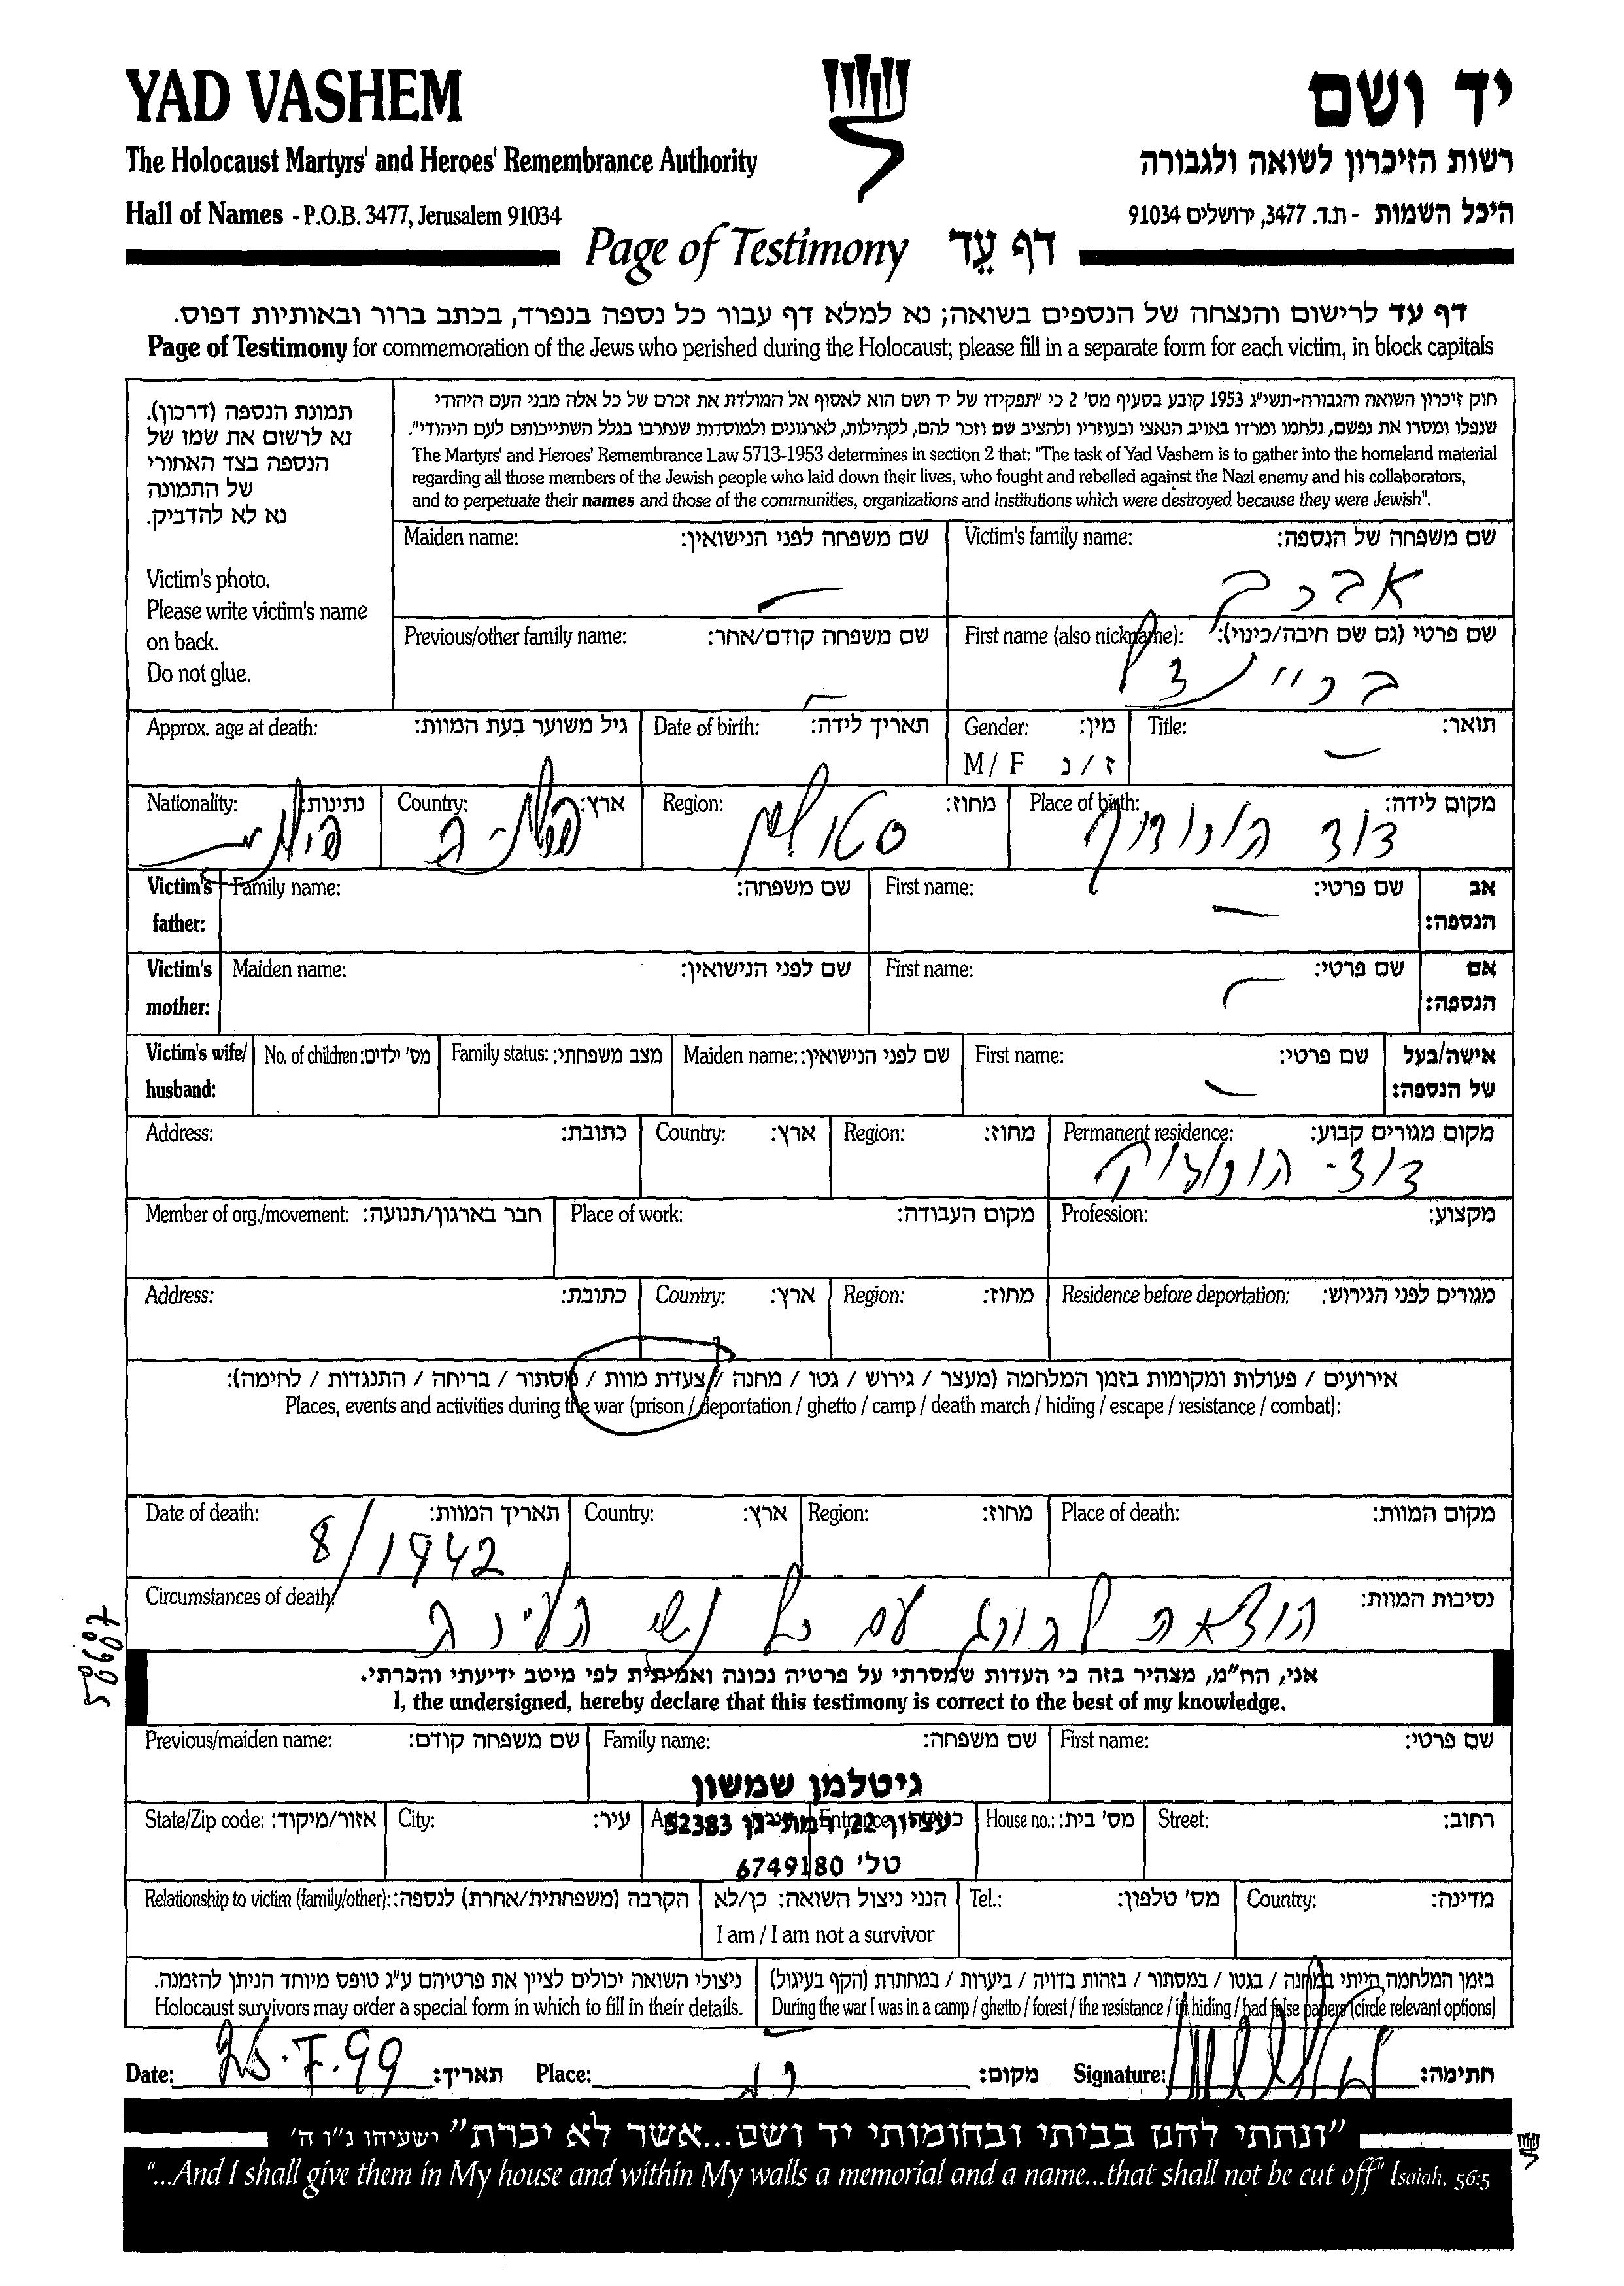 YAD VASHEM
יד ושם
The Holocaust Martyrs' and Heroes' Remembrance Authority
רשות הזיכרון לשואה ולגבורה
Hall of Names - P.O.B. 3477, Jerusalem 91034
היכל השמות - ת.ד. 3477, ירושלים 91034
Page of Testimony דף עֵד
דף עד לרישום והנצחה של הנספים בשואה; נא למלא דף עבור כל נספה בנפרד, בכתב ברור ובאותיות דפוס.
Page of Testimony for commemoration of the Jews who perished during the Holocaust; please fill in a separate form for each victim, in block capitals
תמונת הנספה (דרכון).
נא לרשום את שמו של
הנספה בצד האחורי
של התמונה
נא לא להדביק.
Victim's photo.
Please write victim's name
on back.
Do not glue.
חוק זיכרון השואה והגבורה-תשי"ג 1953 קובע בסעיף מס' 2 כי "תפקידו של יד ושם הוא לאסוף אל המולדת את זכרם של כל אלה מבני העם היהודי
שנפלו ומסרו את נפשם, נלחמו ומרדו באויב הנאצי ובעוזריו ולהציב שם וזכר להם, לקהילות, לארגונים ולמוסדות שנחרבו בגלל השתייכותם לעם היהודי".
The Martyrs' and Heroes' Remembrance Law 5713-1953 determines in section 2 that: "The task of Yad Vashem is to gather into the homeland material
regarding all those members of the Jewish people who laid down their lives, who fought and rebelled against the Nazi enemy and his collaborators,
and to perpetuate their names and those of the communities, organizations and institutions which were destroyed because they were Jewish".
Maiden name: שם משפחה לפני הנישואין: Victim's family name: שם משפחה של הנספה:
Previous/other family name: שם משפחה קודם/אחר: First name (also nickname): שם פרטי (גם שם חיבה/כינוי):
Approx. age at death: גיל משוער בעת המוות: Date of birth: תאריך לידה: Gender: מין: Title: תואר:
M / F ז / נ
Nationality: נתינות: Country: ארץ: Region: מחוז: Place of birth: מקום לידה:
Victim's father: Family name: שם משפחה: First name: שם פרטי: אב הנספה:
Victim's mother: Maiden name: שם לפני הנישואין: First name: שם פרטי: אם הנספה:
Victim's wife/ husband: No. of children: מס' ילדים: Family status: מצב משפחתי: Maiden name: שם לפני הנישואין: First name: שם פרטי: אישה/בעל של הנספה:
Address: כתובת: Country: ארץ: Region: מחוז: Permanent residence: מקום מגורים קבוע:
Member of org./movement: חבר בארגון/תנועה: Place of work: מקום העבודה: Profession: מקצוע:
Address: כתובת: Country: ארץ: Region: מחוז: Residence before deportation: מגורים לפני הגירוש:
אירועים / פעולות ומקומות בזמן המלחמה (מעצר / גירוש / גטו / מחנה / צעדת מוות / מסתור / בריחה / התנגדות / לחימה):
Places, events and activities during the war (prison / deportation / ghetto / camp / death march / hiding / escape / resistance / combat):
Date of death: תאריך המוות: Country: ארץ: Region: מחוז: Place of death: מקום המוות:
8/1942
Circumstances of death: נסיבות המוות:
הוצאה להורג עם כל
58687
אני, הח"מ, מצהיר בזה כי העדות שמסרתי על פרטיה נכונה ואמיתית לפי מיטב ידיעתי והכרתי.
I, the undersigned, hereby declare that this testimony is correct to the best of my knowledge.
Previous/maiden name: שם משפחה קודם: Family name: שם משפחה: First name: שם פרטי:
גיטלמן שמשון
State/Zip code: אזור/מיקוד: City: עיר: Entrance: House no.: מס' בית: Street: רחוב:
עציון 22, רמת-גן 52383
טל' 6749180
Relationship to victim (family/other): הקרבה (משפחתית/אחרת) לנספה: הנני ניצול השואה: כן/לא Tel.: מס' טלפון: Country: מדינה:
I am / I am not a survivor
ניצולי השואה יכולים לציין את פרטיהם ע"ג טופס מיוחד הניתן להזמנה.
Holocaust survivors may order a special form in which to fill in their details.
בזמן המלחמה הייתי במחנה / בגטו / במסתור / בזהות בדויה / ביערות / במחתרת (הקף בעיגול)
During the war I was in a camp / ghetto / forest / the resistance / in hiding / had false papers (circle relevant options)
Date: 25.7.99 תאריך: Place: מקום: Signature: חתימה:
"ונתתי להם בביתי ובחומותי יד ושם...אשר לא יכרת" ישעיהו נ"ו ה'
"...And I shall give them in My house and within My walls a memorial and a name...that shall not be cut off" Isaiah, 56:5